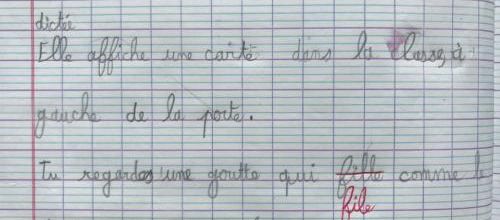 dictée
Elle affiche une carte dans la classe, à
gauche de la porte.
Tu regardes une goutte qui fille comme l
file